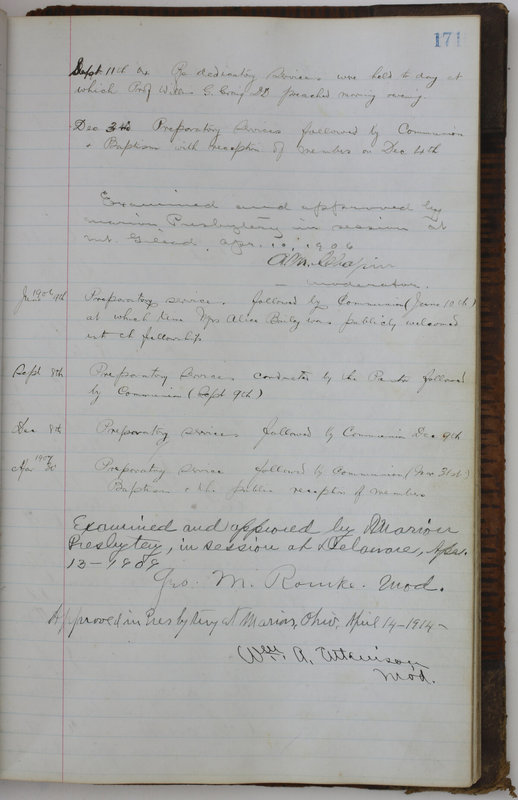 171
Sept 11th Re dedicatory Services were held to day at
which Prof Willis G. Craig DD preached morning evening.
Dec 3rd Preparatory Services followed by Communion
+ Baptism with reception of members on Dec 4th
Examined and approved by
marion Presbytery in session at
mt. Gilead, Apr. 10, 1906
A.M. Chapin
moderator.
1906
Preparatory services followed by Communion (June 10th)
at which time Mrs Alice Bailey was publicly welcomed
into ch fellowship
Sept 8th Preparatory Services conducted by the Pastor followed
by Communion (Sept 9th)
Dec 8th Preparatory services followed by Communion Dec 9th
1907
Preparatory service followed by Communion (Mar 31st)
Baptism + the public reception of members
Examined and approved by Marion
Presbytery, in session at Delaware, Apr.
13-1909
Jno. M. Rourke. Mod.
Approved in Presbytery at Marion, Ohio, April 14-1914-
Wm A. Atkinson
Mod.